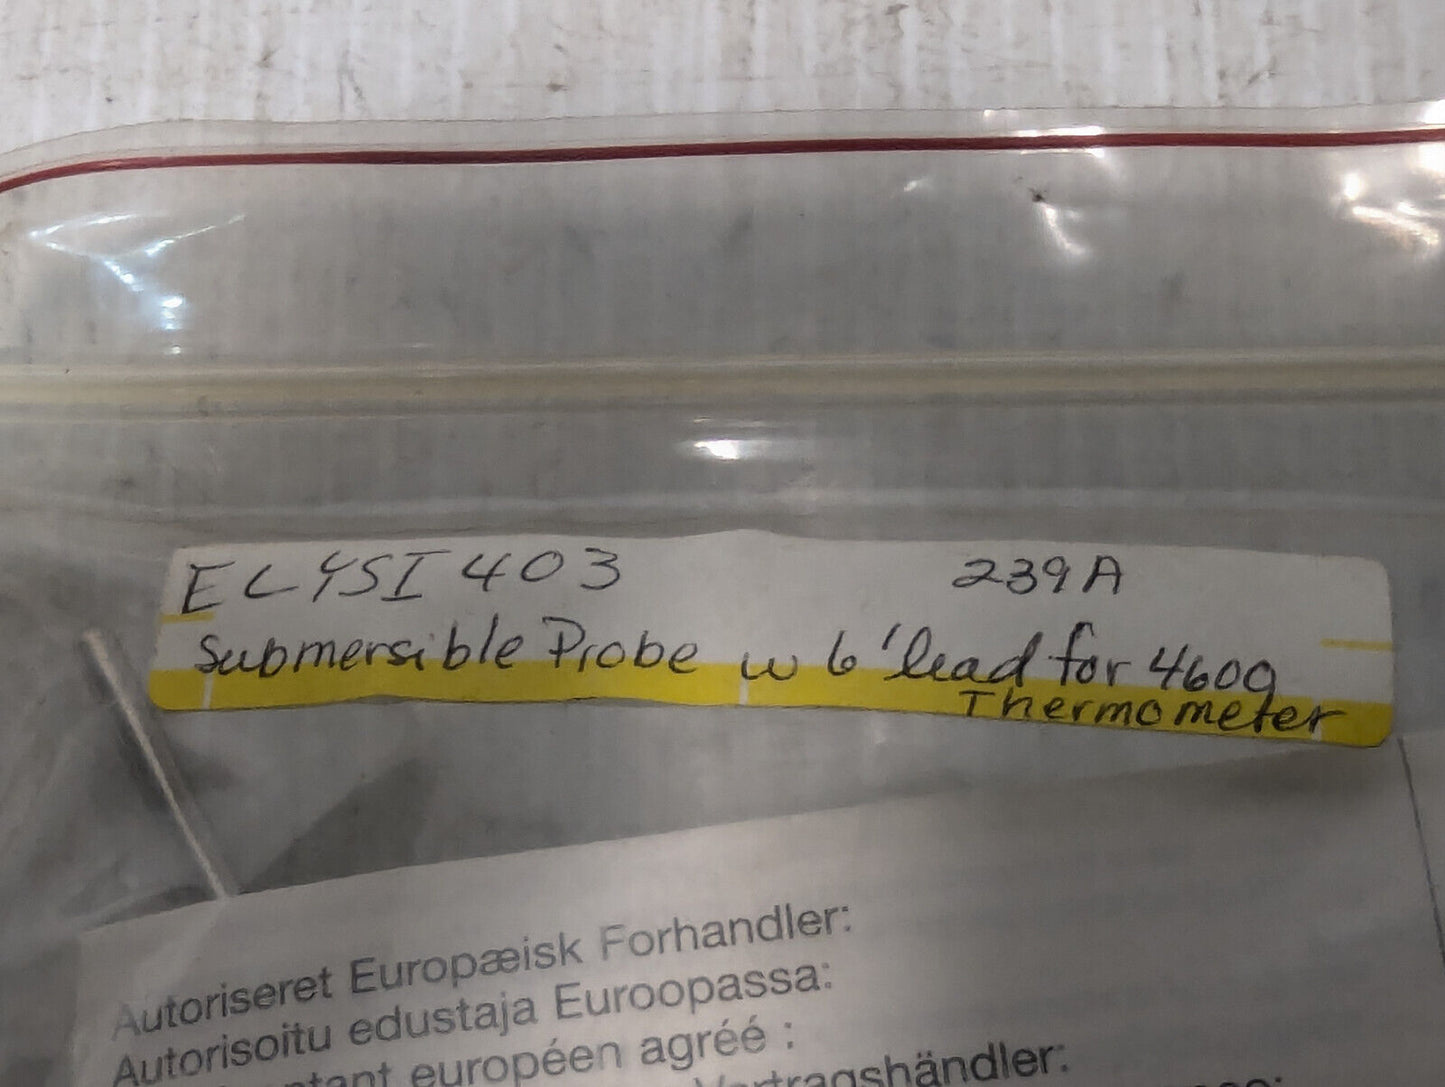 ECYSI 403 239A
Submersible Probe w 6' lead for 4600
Thermometer
Autoriseret Europæisk Forhandler:
Autorisoitu edustaja Euroopassa:
européen agréé :